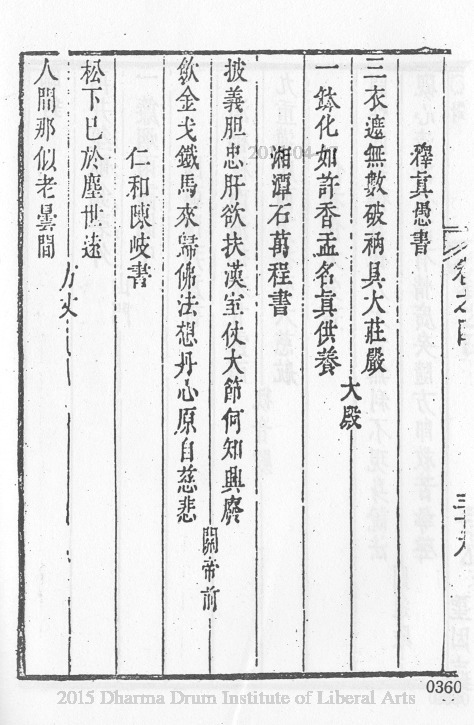 釋真愚書
三衣遮無數破衲具大莊嚴
一鉢化如許香盂名真供養
大殿
湘潭石萬程書
披義胆忠肝欲扶漢室仗大節何知興廢
歛金戈鐵馬來歸佛法想丹心原自慈悲
關帝前
仁和陳岐書
松下已於塵世遠
人間那似老曇閒
方丈
卷之四
三十九
0360
2015 Dharma Drum Institute of Liberal Arts